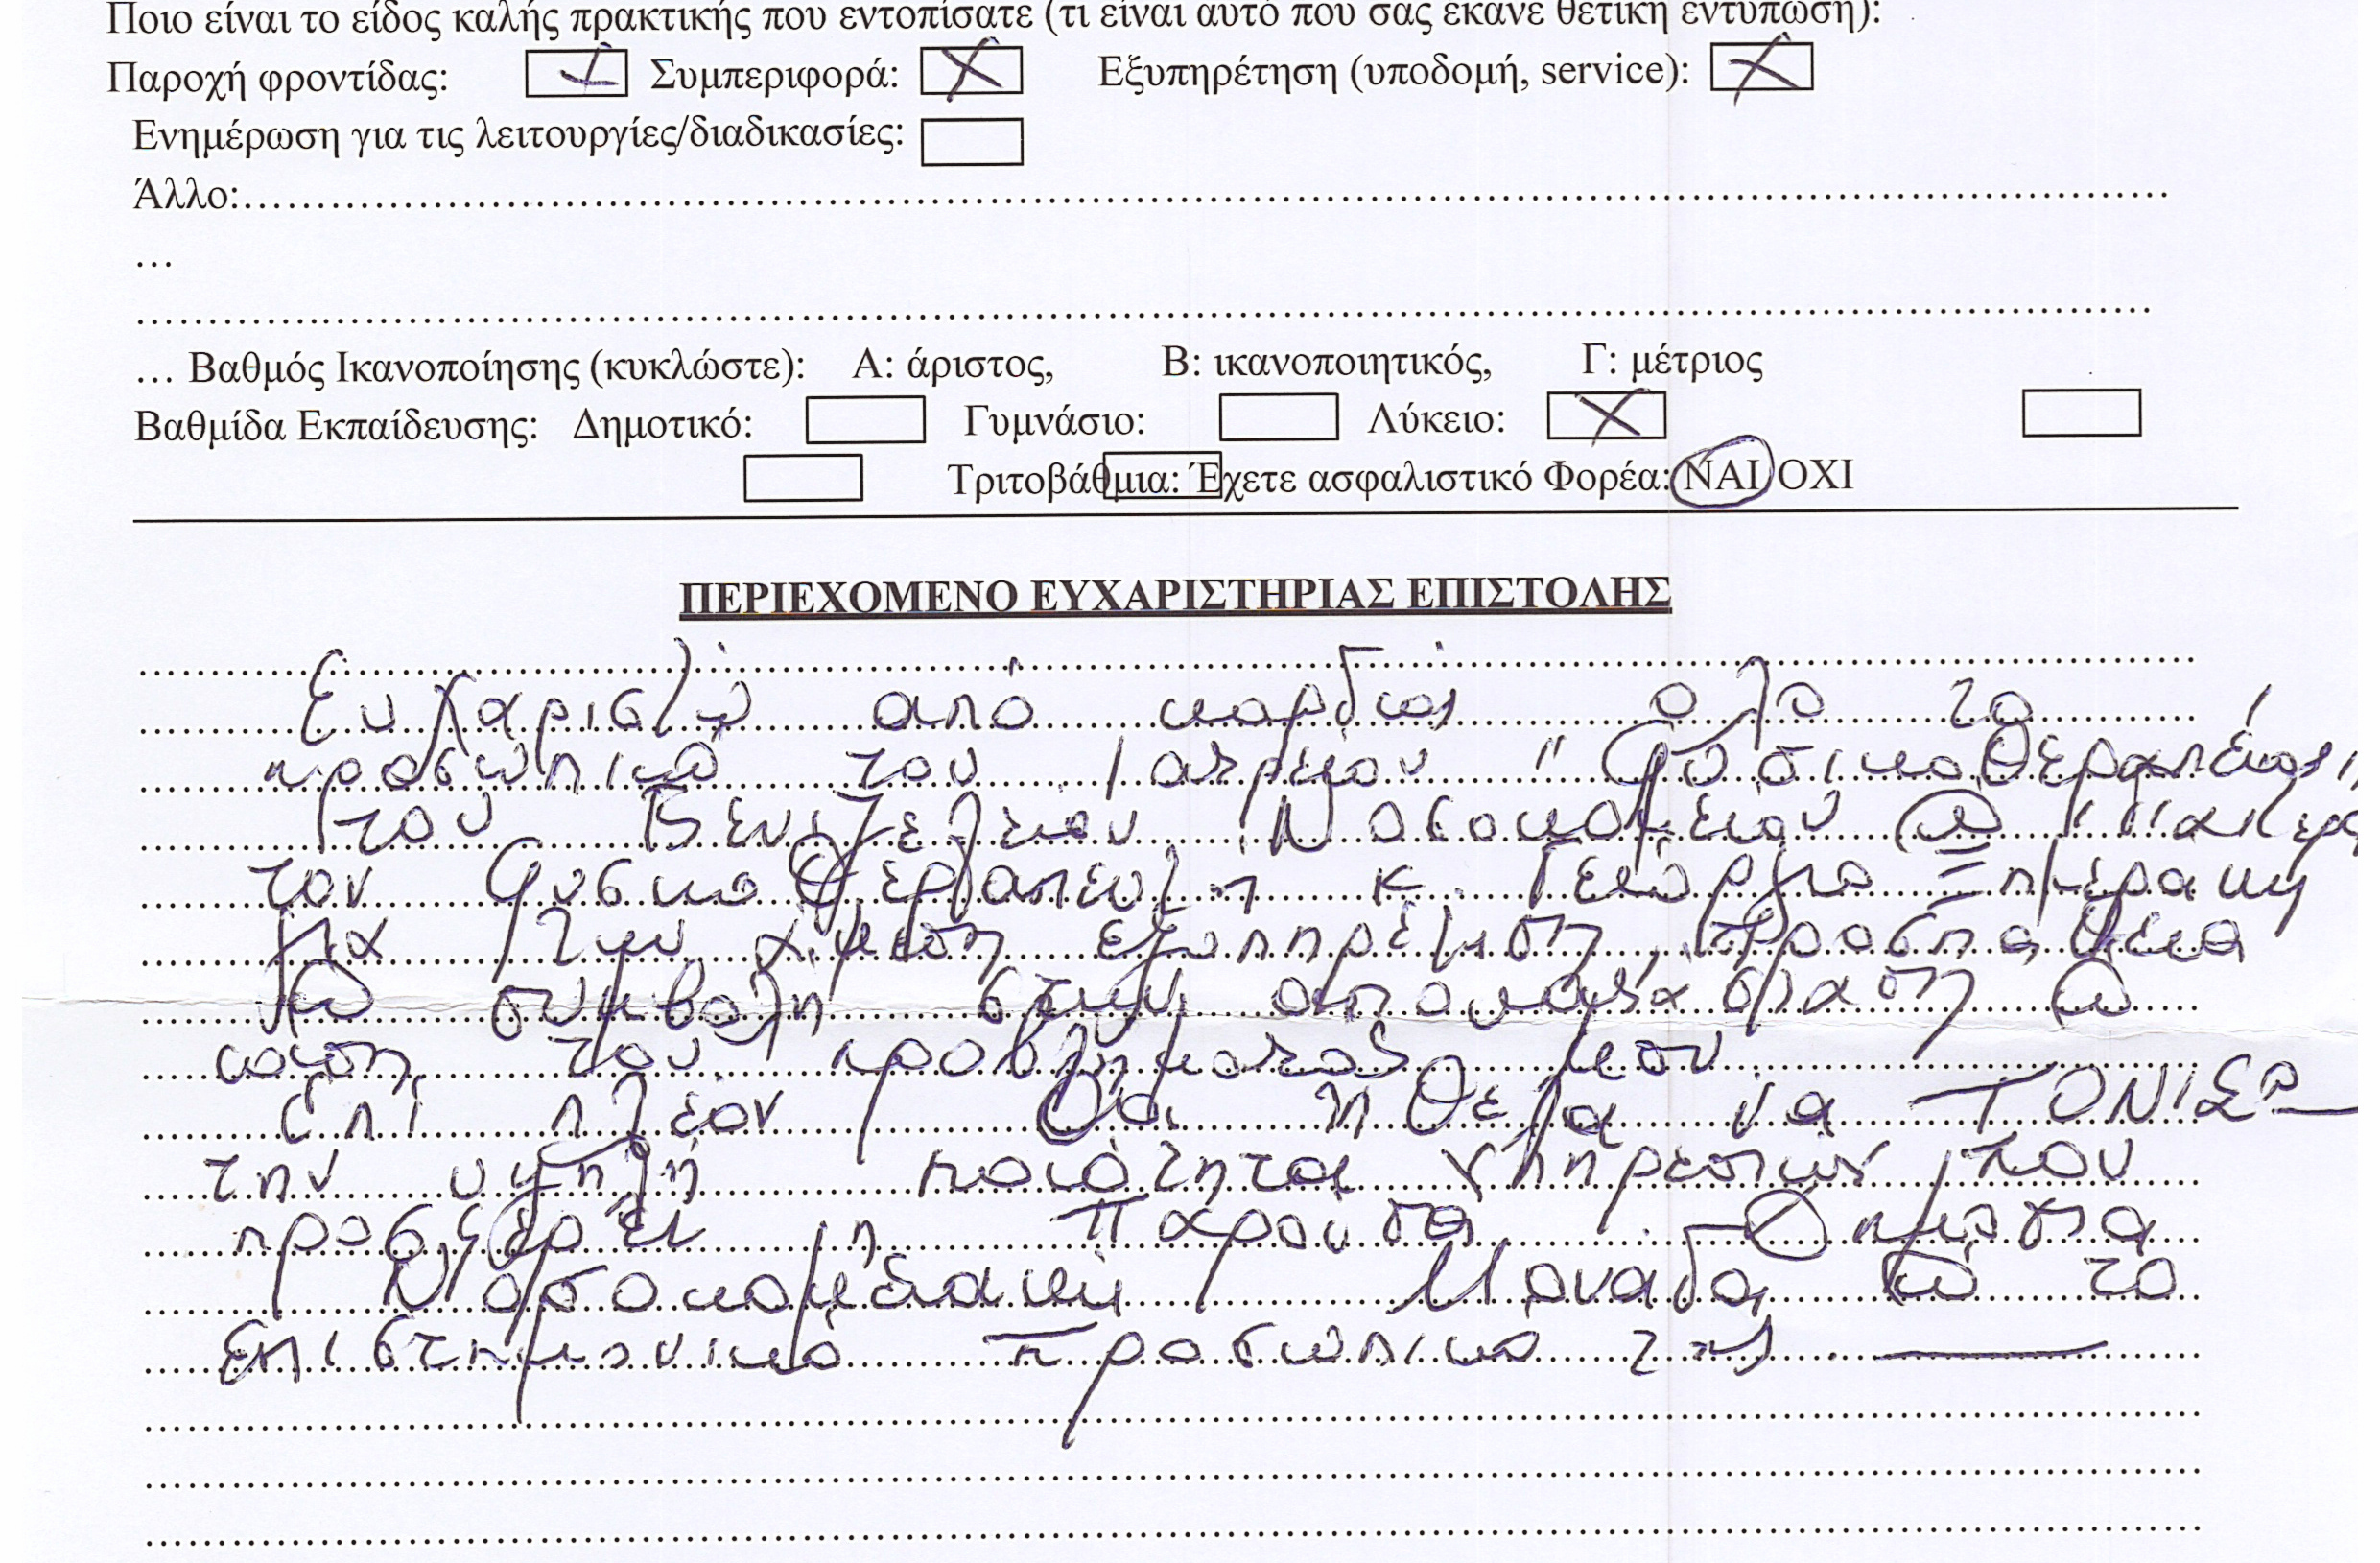 Ποιο είναι το είδος καλής πρακτικής που εντοπίσατε (τι είναι αυτό που σας έκανε θετική εντύπωση):
Παροχή φροντίδας: Συμπεριφορά: Εξυπηρέτηση (υποδομή, service):
Ενημέρωση για τις λειτουργίες/διαδικασίες:
Άλλο:
…
… Βαθμός Ικανοποίησης (κυκλώστε): Α: άριστος, Β: ικανοποιητικός, Γ: μέτριος
Βαθμίδα Εκπαίδευσης: Δημοτικό: Γυμνάσιο: Λύκειο:
Τριτοβάθμια: Έχετε ασφαλιστικό Φορέα: ΝΑΙ ΟΧΙ
ΠΕΡΙΕΧΟΜΕΝΟ ΕΥΧΑΡΙΣΤΗΡΙΑΣ ΕΠΙΣΤΟΛΗΣ
Ευχαριστώ από καρδιας ολο το
προσωπικό του Ιατρείου "Φυσικοθεραπείας"
του Βενιζελειου Νοσοκομείου &
τον Φυσικοθεραπευτη κ. Γεώργιο
για την άμεση εξυπηρέτηση, προσπαθεια
& συμβολη στην αποκατάσταση &
ιαση του προβληματος μου.
Επί πλέον θα ηθελα να ΤΟΝΙΣΩ
την υψηλή ποιότητα Υπηρεσιών, που
προσφέρει η Παρουσα Δημοσια
Νοσοκομειακή Μοναδα & το
επιστημονικό Προσωπικο της